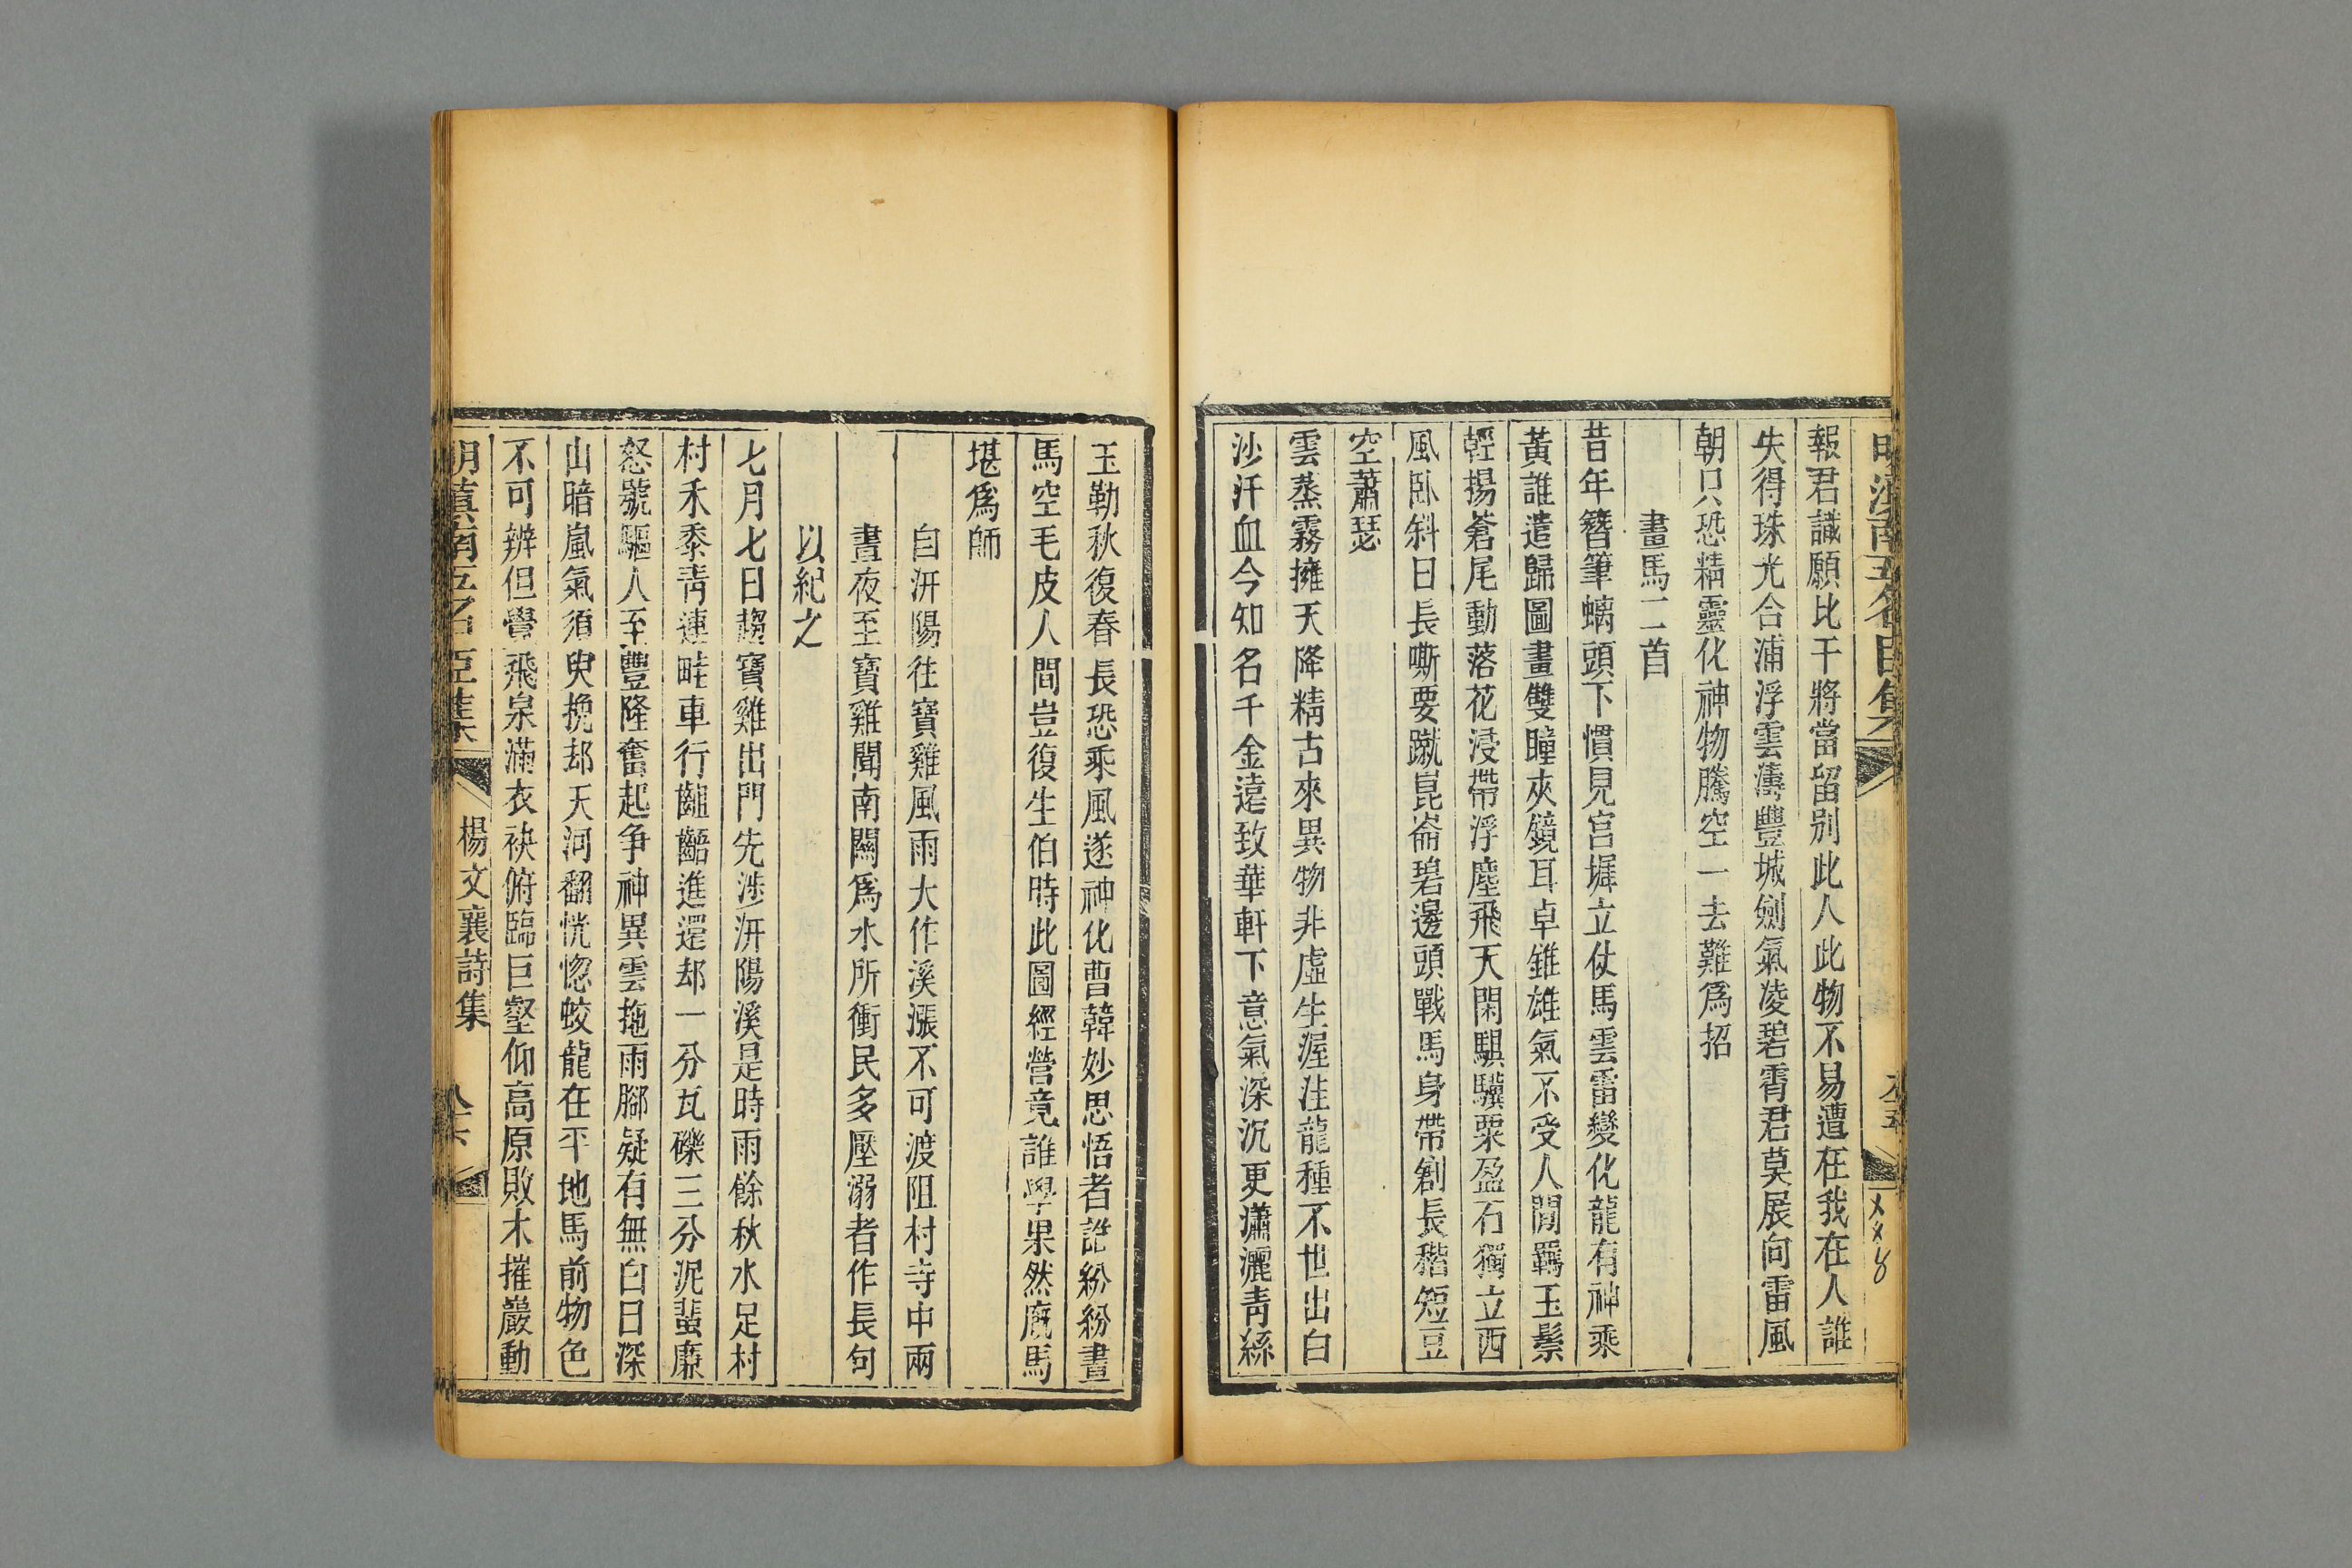 報君識願比干將當留别此人此物不易遭在我在人誰
失得珠光合浦浮雲濤豐城劍氣凌碧霄君莫展向雷風
朝只恐精靈化神物騰空一去難爲招
畫馬二首
昔年簪筆螭頭下慣見宫墀立仗馬雲雷變化龍有神乘
黃誰遣歸圖畫雙瞳夾鏡耳卓錐雄氣不受人間羈玉鬃
輕揚蒼尾動落花浸帶浮塵飛天閑騏驥粟盈石獨立西
風卧斜日長嘶要蹴崑崙碧邊頭戰馬身帶創長稭短豆
空蕭瑟
雲蒸霧擁天降精古來異物非虛生渥洼龍種不世出白
沙汗血今知名千金遠致華軒下意氣深沉更瀟灑靑絲
玉勒秋復春長恐乘風遂神化曹韓妙思悟者誰紛紛畫
馬空毛皮人間豈復生伯時此圖經營竟誰學果然廐馬
堪爲師
自汧陽往寶雞風雨大作溪漲不可渡阻村寺中兩
晝夜至寶雞聞南關爲水所衝民多壓溺者作長句
以紀之
七月七日趨寶雞出門先涉汧陽溪是時雨餘秋水足村
村禾黍靑連畦車行齟齬進還却一分瓦礫三分泥蜚廉
怒號驅人至豐隆奮起争神異雲拖雨腳疑有無白日深
山暗嵐氣須臾挽却天河翻恍惚蛟龍在平地馬前物色
不可辨但覺飛泉滿衣袂俯臨巨壑仰高原敗木摧巖動
明滇南五名臣集 楊文襄詩集